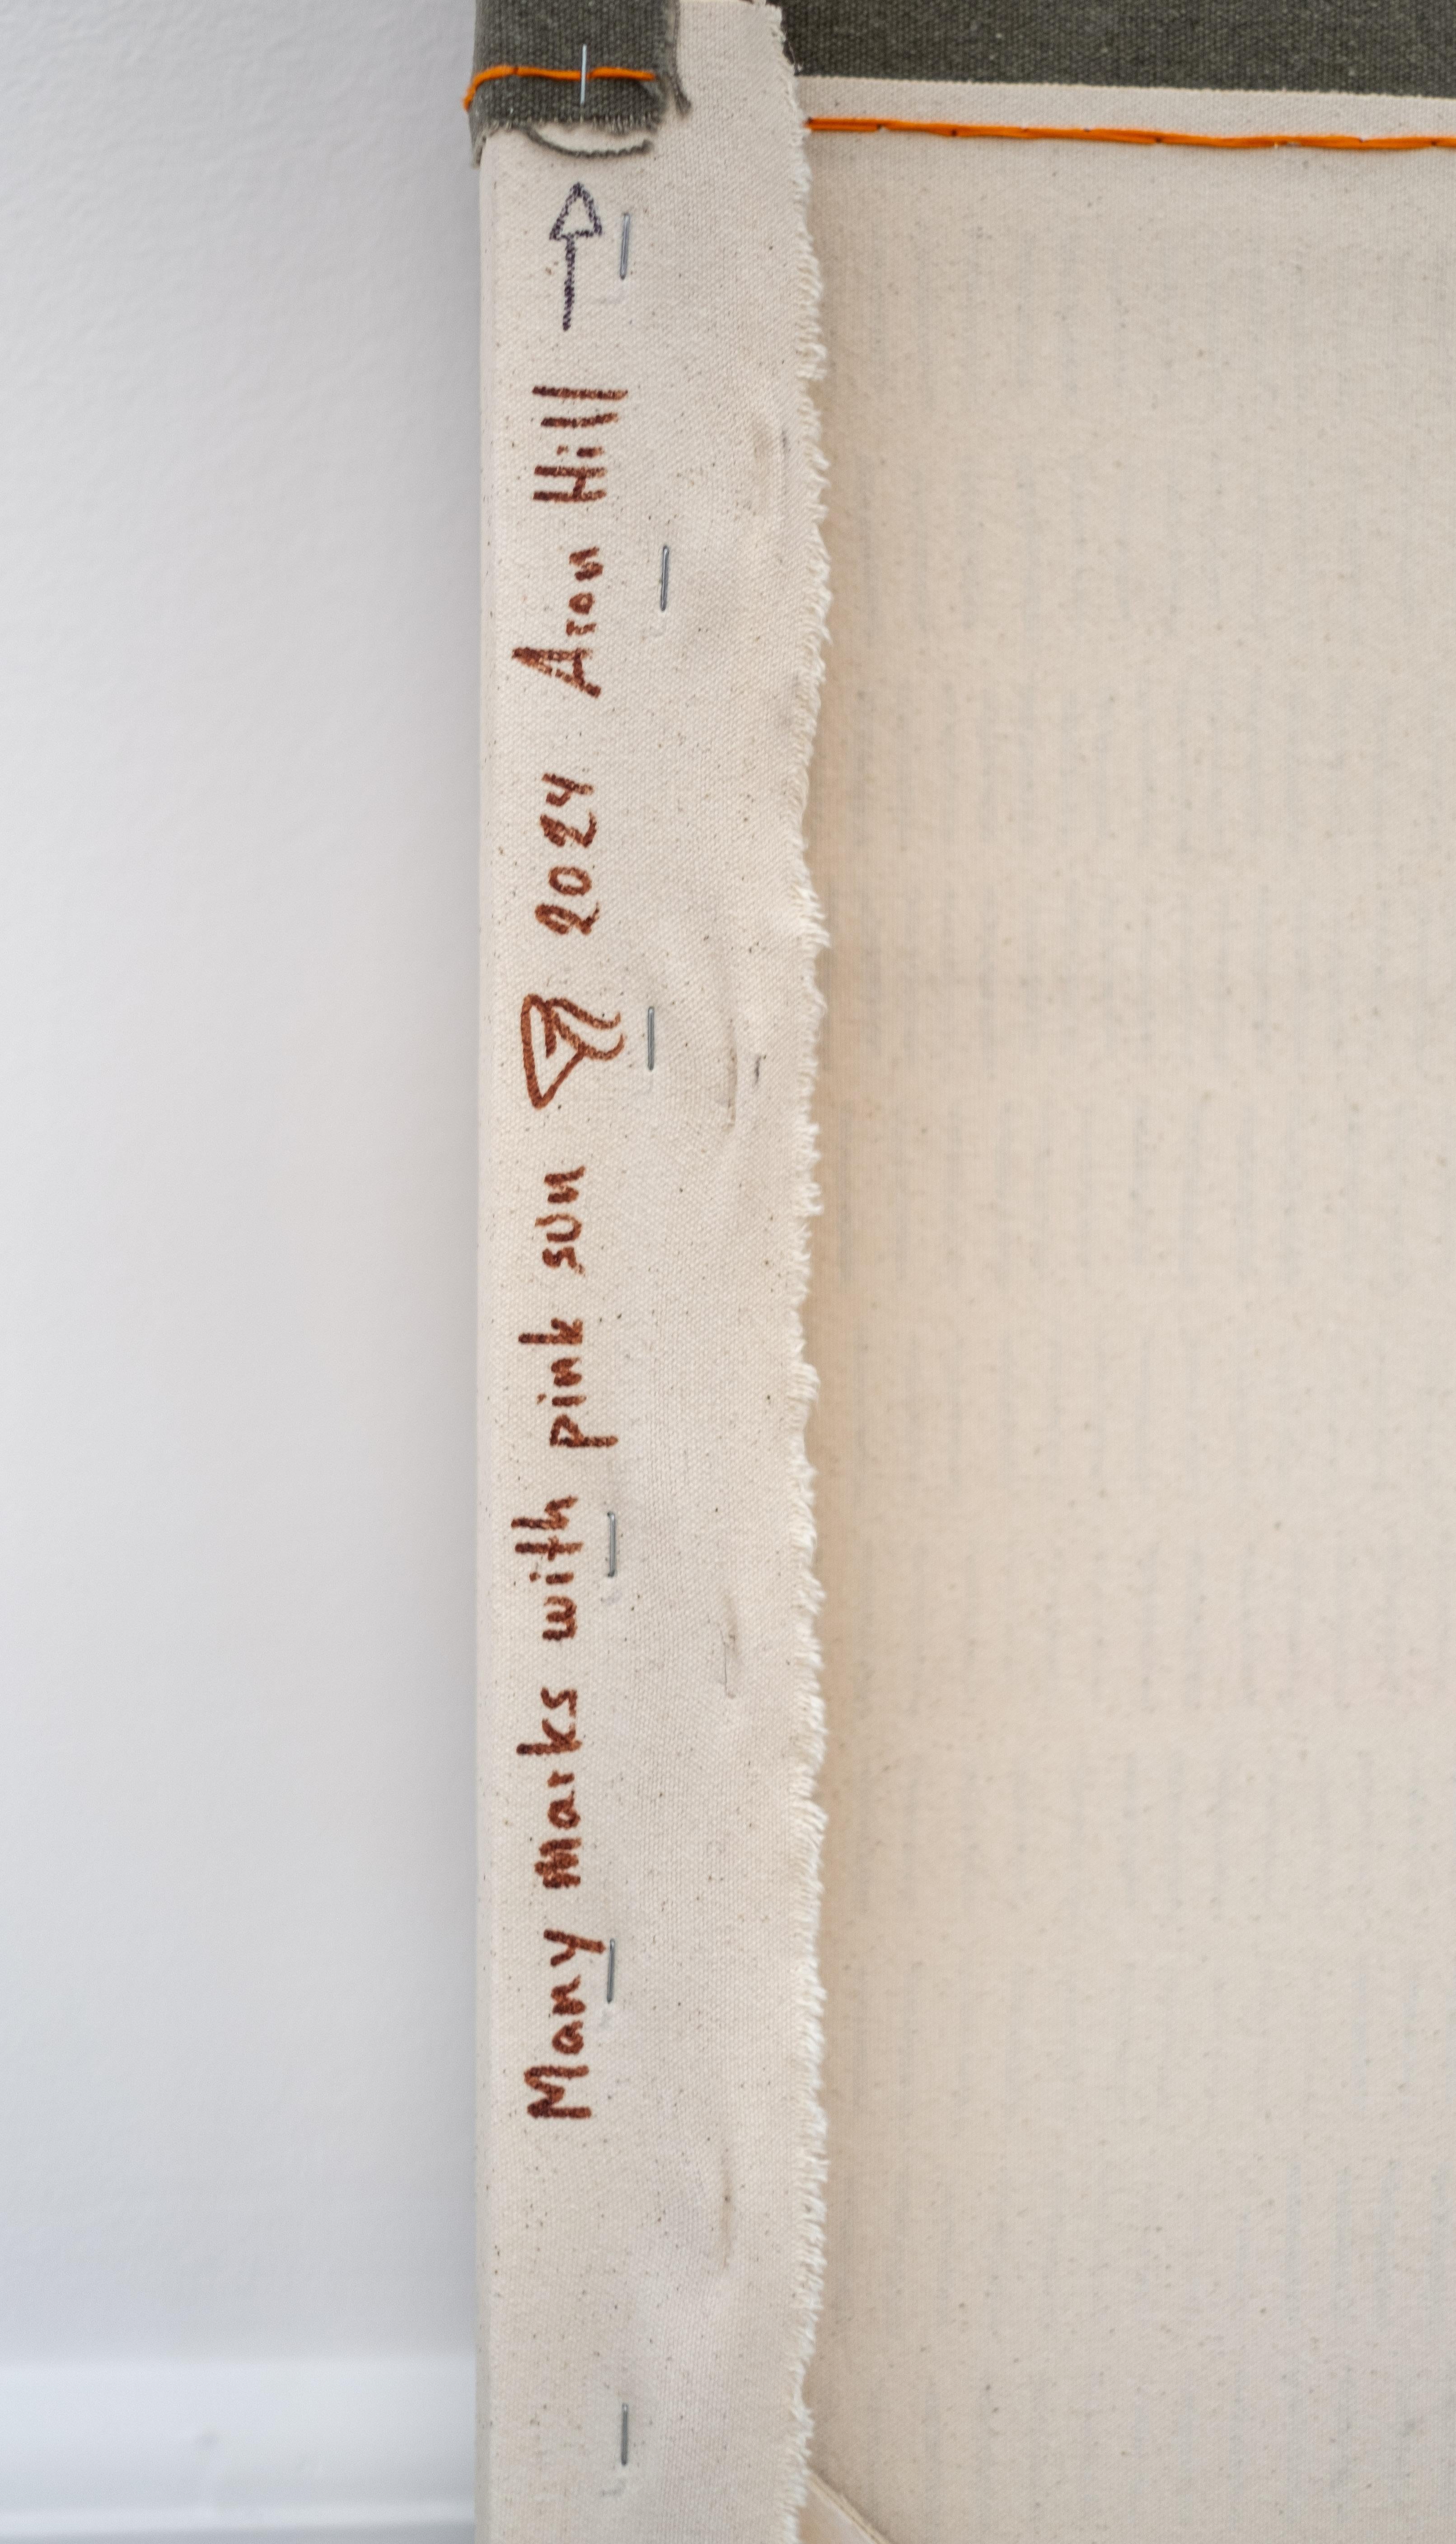 Many marks with pink sun 2024 Aron Hill